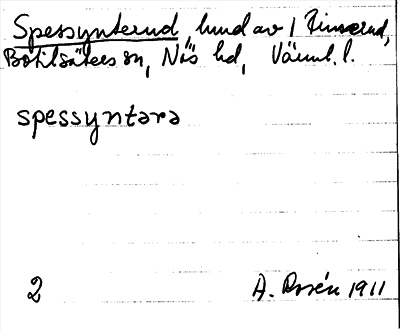 Spessynterud, hmd av 1 Finnerud,
Botilsäters sn, Näs hd, Värml. l.
spessyntara
2 A. Rosén 1911